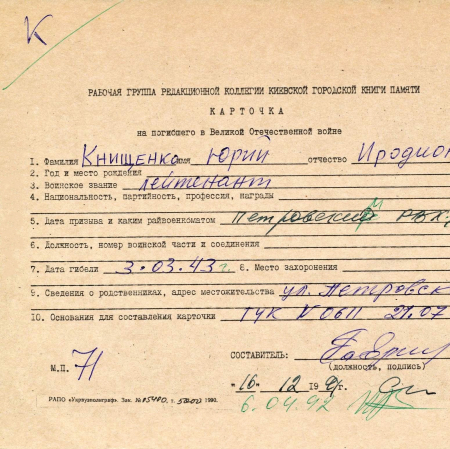 К
РАБОЧАЯ ГРУППА РЕДАКЦИОННОЙ КОЛЛЕГИИ КИЕВСКОЙ ГОРОДСКОЙ КНИГИ ПАМЯТИ
КАРТОЧКА
на погибшего в Великой Отечественной войне
1. Фамилия Книщенко имя Юрий отчество Иродион
2. Год и место рождения
3. Воинское звание лейтенант
4. Национальность, партийность, профессия, награды
5. Дата призыва и каким райвоенкоматом Петровским РВК
6. Должность, номер воинской части и соединения
7. Дата гибели 3.03.43г. 8. Место захоронения
9. Сведения о родственниках, адрес местожительства ул. Петровск
10. Основания для составления карточки ГУК 27.07
СОСТАВИТЕЛЬ: Гаврил
(должность, подпись)
М.П. 71
"16" 12 199 г.
6.04.92
РАПО «Укрвузполиграф». Зак. № 5400, т. 5000 1990.